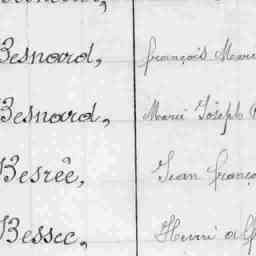 Besnard, François Marie
Besnard, Marie Joseph
Besrêe, Jean
Bessec, Henri